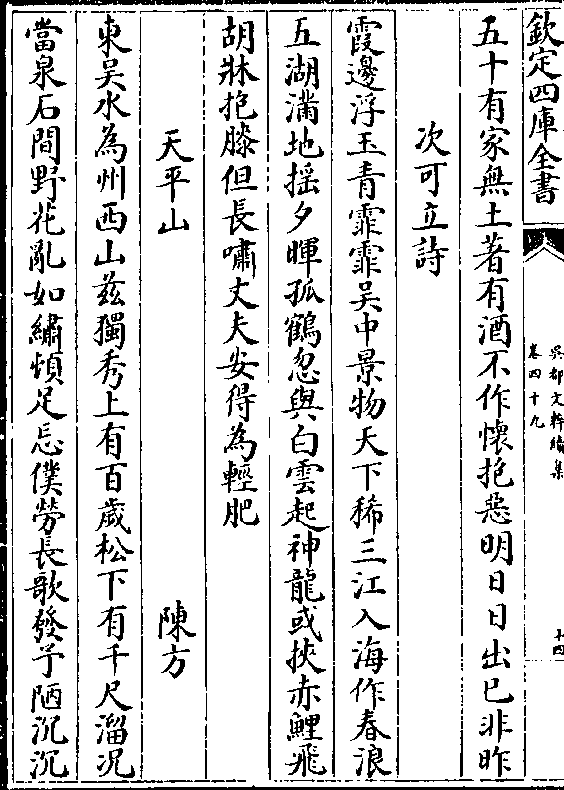 欽定四庫全書
吳都文粹續集
卷四十九
十四
五十有家無土著有酒不作懷抱惡明日日出已非昨
次可立詩
霞邊浮玉青霏霏吳中景物天下稀三江入海作春浪
五湖滿地揺夕暉孤鶴忽與白雲起神龍或挾赤鯉飛
胡牀抱膝但長嘯丈夫安得為輕肥
天平山 陳方
東吳水為州西山兹獨秀上有百歲松下有千尺溜况
當泉石間野花亂如繡煩足忘僕勞長歌發予陋沉沉